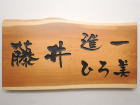 藤井 進一
ひろ美